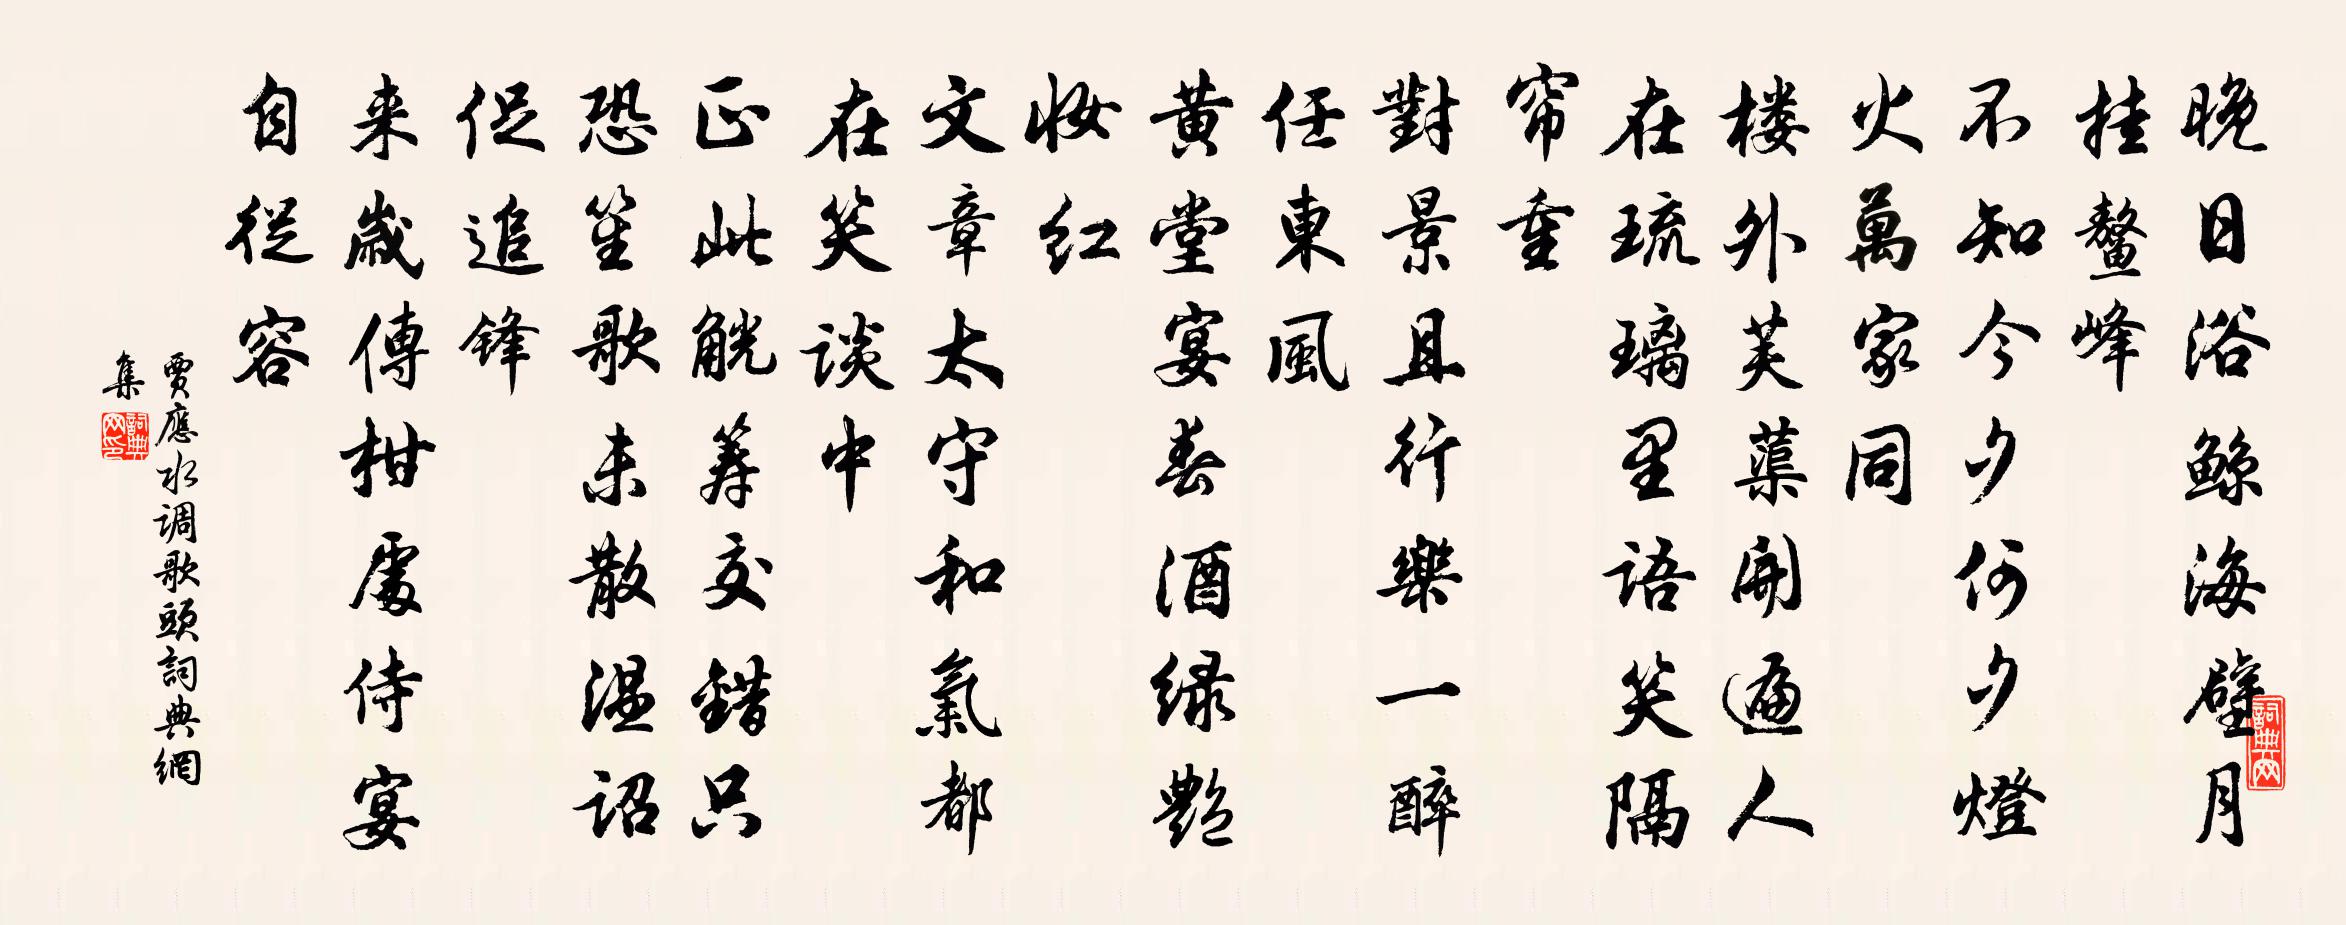 晚日浴鲸海璧月
挂鳌峰
不知今夕何夕燈
火萬家同
楼外芙蕖開遍人
在琉璃里语笑隔
帘重
對景且行樂一醉
任東風
黄堂宴春酒绿艷
妆红
文章太守和氣都
在笑谈中
正此觥筹交錯只
恐笙歌未散温诏
促追锋
来歲傳柑處侍宴
自從容
賈應水调歌頭詞典網
集
詞典网
詞典网印